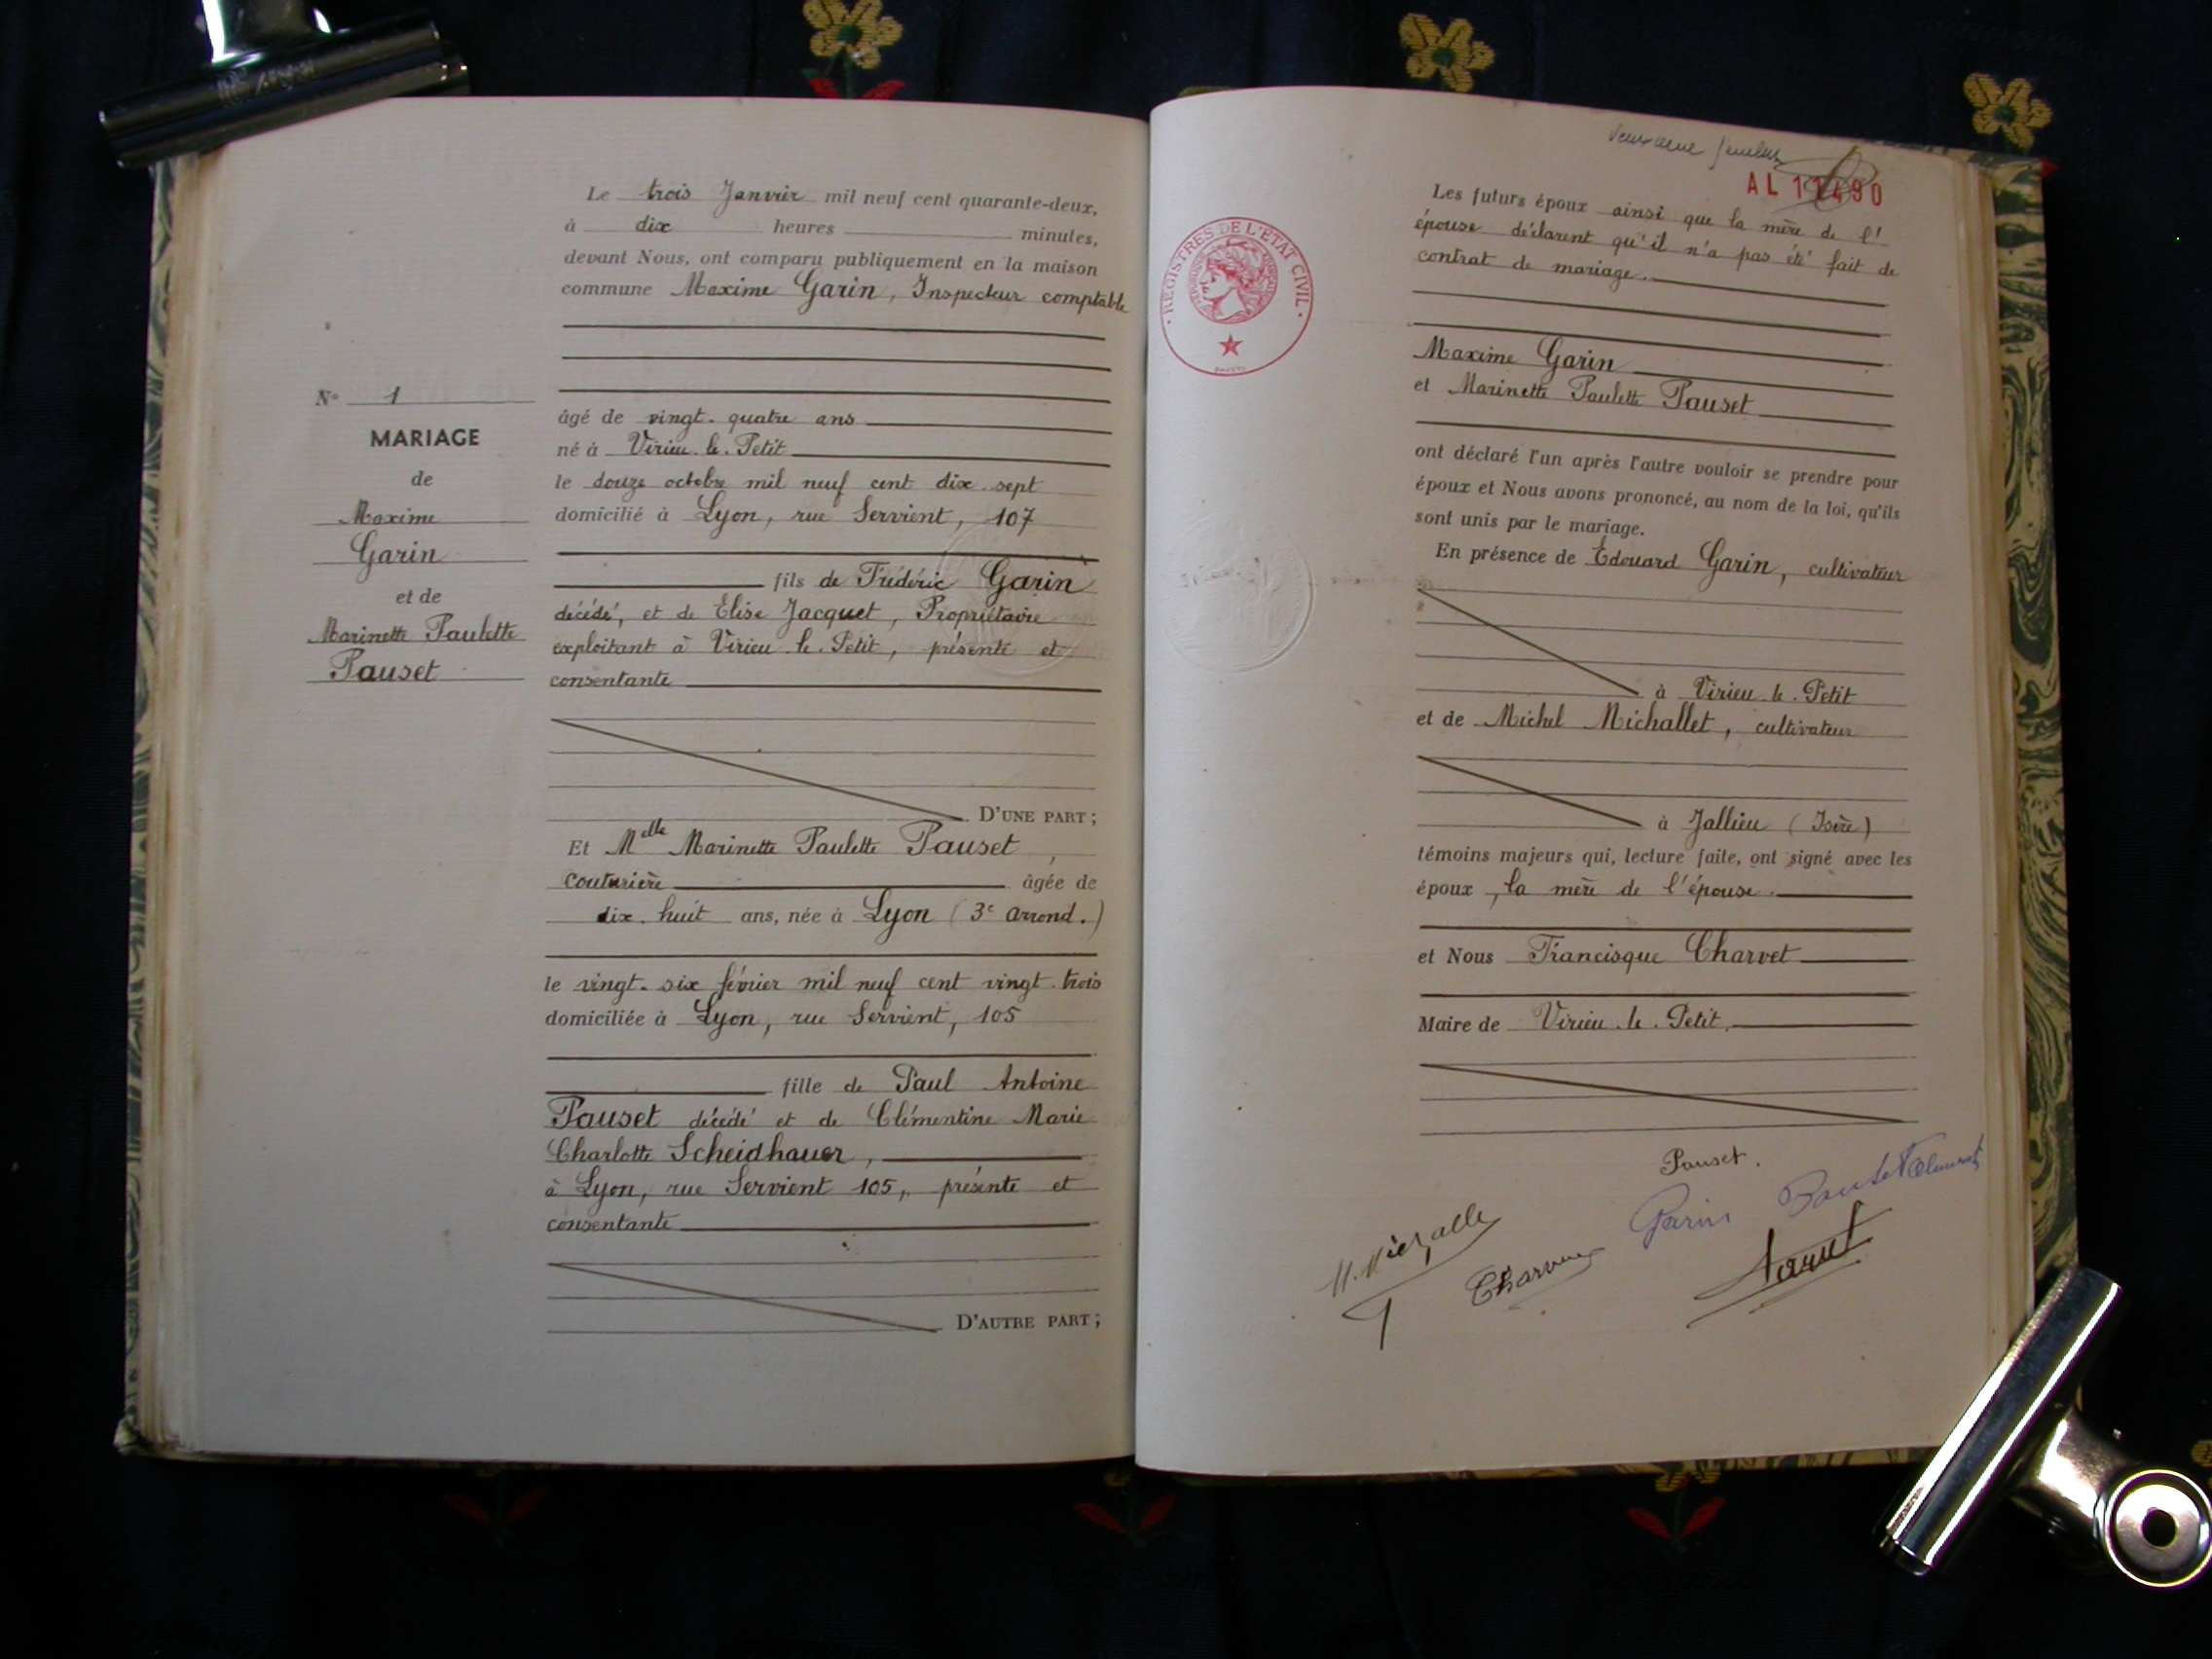 Le trois Janvier mil neuf cent quarante-deux,
à dix heures minutes,
devant Nous, ont comparu publiquement en la maison
commune Maxime Garin, Inspecteur comptable
N° 1
MARIAGE
de
Maxime
Garin
et de
Marinette Paulette
Pauset
âgé de vingt-quatre ans
né à Virieu-le-Petit
le douze octobre mil neuf cent dix-sept
domicilié à Lyon, rue Servient, 107
fils de Frédéric Garin
décédé, et de Elise Jacquet, Propriétaire
exploitant à Virieu-le-Petit, présente et
consentante
D'UNE PART;
Et Melle Marinette Paulette Pauset
couturière âgée de
dix-huit ans, née à Lyon (3e arrond.)
le vingt-six février mil neuf cent vingt-trois
domiciliée à Lyon, rue Servient, 105
fille de Paul Antoine
Pauset décédé et de Clémentine Marie
Charlotte Scheidhauer,
à Lyon, rue Servient 105, présente et
consentante
D'AUTRE PART;
AL 11490
REGISTRES DE L'ÉTAT CIVIL
Les futurs époux ainsi que la mère de l'
épouse déclarent qu'il n'a pas été fait de
contrat de mariage.
Maxime Garin
et Marinette Paulette Pauset
ont déclaré l'un après l'autre vouloir se prendre pour
époux et Nous avons prononcé, au nom de la loi, qu'ils
sont unis par le mariage.
En présence de Edouard Garin, cultivateur
à Virieu-le-Petit
et de Michel Michallet, cultivateur
à Jallieu (Isère)
témoins majeurs qui, lecture faite, ont signé avec les
époux, la mère de l'épouse.
et Nous Francisque Charvet
Maire de Virieu-le-Petit.
Pauset.
Garin
Charvet